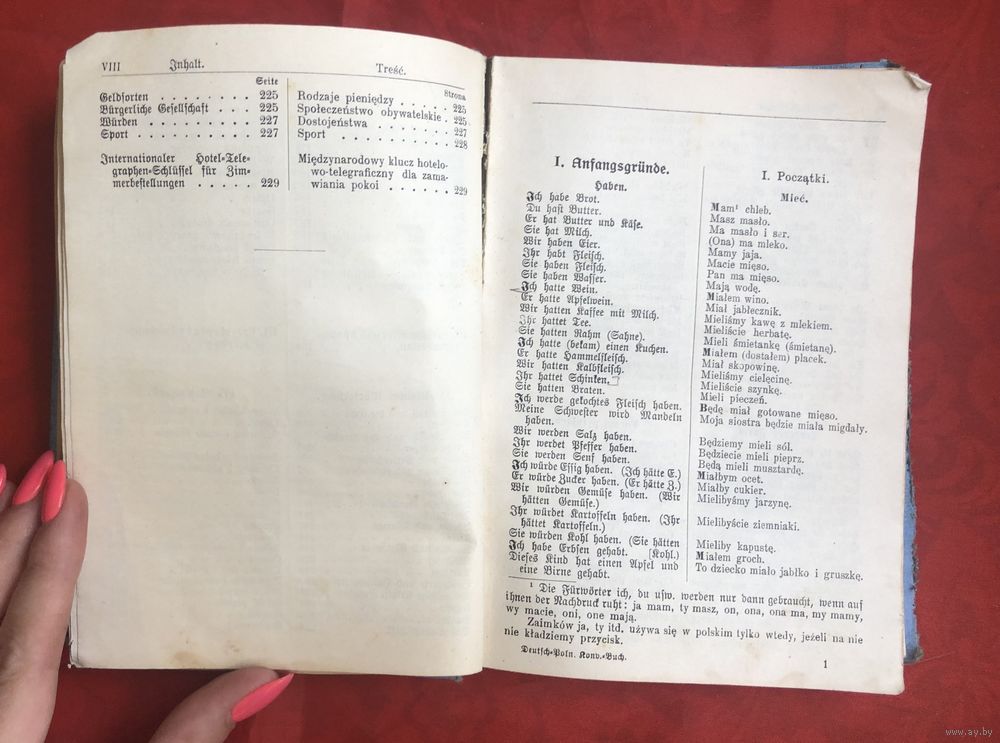 VIII Inhalt. Treść.
Seite
Geldsorten . . . . . . . . 225
Bürgerliche Gesellschaft . . . 225
Würden . . . . . . . . . . 227
Sport . . . . . . . . . . . 227
Internationaler Hotel-Tele-
graphen-Schlüssel für Zim-
merbestellungen . . . . . 229
Strona
Rodzaje pieniędzy . . . . . 225
Społeczeństwo obywatelskie . 225
Dostojeństwa . . . . . . . 227
Sport . . . . . . . . . . 228
Międzynarodowy klucz hotelo-
wo-telegraficzny dla zama-
wiania pokoi . . . . . . 229
I. Anfangsgründe.
Haben.
Ich habe Brot.
Du hast Butter.
Er hat Butter und Käse.
Sie hat Milch.
Wir haben Eier.
Ihr habt Fleisch.
Sie haben Fleisch.
Sie haben Wasser.
Ich hatte Wein.
Er hatte Apfelwein.
Wir hatten Kaffee mit Milch.
Ihr hattet Tee.
Sie hatten Rahm (Sahne).
Ich hatte (bekam) einen Kuchen.
Er hatte Hammelfleisch.
Wir hatten Kalbfleisch.
Ihr hattet Schinken.
Sie hatten Braten.
Ich werde gekochtes Fleisch haben.
Meine Schwester wird Mandeln
haben.
Wir werden Salz haben.
Ihr werdet Pfeffer haben.
Sie werden Senf haben.
Ich würde Essig haben. (Ich hätte E.)
Er würde Zucker haben. (Er hätte Z.)
Wir würden Gemüse haben. (Wir
hätten Gemüse.)
Ihr würdet Kartoffeln haben. (Ihr
hättet Kartoffeln.)
Sie würden Kohl haben. (Sie hätten
Ich habe Erbsen gehabt. [Kohl.)
Dieses Kind hat einen Apfel und
eine Birne gehabt.
I. Początki.
Mieć.
Mam¹ chleb.
Masz masło.
Ma masło i ser.
(Ona) ma mleko.
Mamy jaja.
Macie mięso.
Pan ma mięso.
Mają wodę.
Miałem wino.
Miał jabłecznik.
Mieliśmy kawę z mlekiem.
Mieliście herbatę.
Mieli śmietankę (śmietanę).
Miałem (dostałem) placek.
Miał skopowinę.
Mieliśmy cielęcinę.
Mieliście szynkę.
Mieli pieczeń.
Będę miał gotowane mięso.
Moja siostra będzie miała migdały.
Będziemy mieli sól.
Będziecie mieli pieprz.
Będą mieli musztardę.
Miałbym ocet.
Miałby cukier.
Mielibyśmy jarzynę.
Mielibyście ziemniaki.
Mieliby kapustę.
Miałem groch.
To dziecko miało jabłko i gruszkę.
¹ Die Fürwörter ich, du usw. werden nur dann gebraucht, wenn auf
ihnen der Nachdruck ruht: ja mam, ty masz, on, ona, ono ma, my mamy,
wy macie, oni, one mają.
Zaimków ja, ty itd. używa się w polskim tylko wtedy, jeżeli na nie
nie kładziemy przycisk.
Deutsch-Poln. Konv.-Buch. 1
www.ay.by